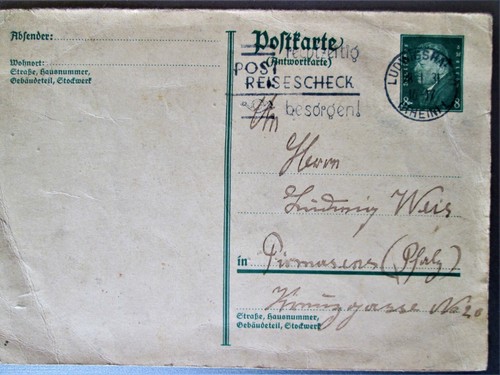 Absender:
Wohnort:
Straße, Hausnummer,
Gebäudeteil, Stockwerk
Postkarte
(Antwortkarte)
rechtzeitig
POST
REISESCHECK
besorgen!
LUDWIGSHAFEN
(RHEIN)
8 8
An
Herrn
Ludwig Weis
in Pirmasens (Pfalz)
Kreuzgasse No 20
Straße, Hausnummer,
Gebäudeteil, Stockwerk